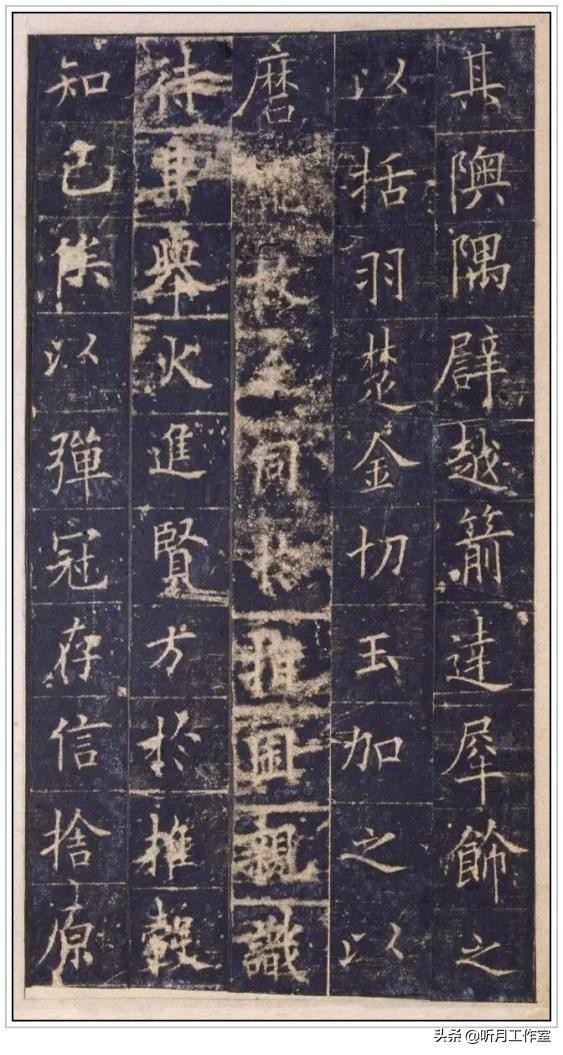 其隩隅辟越箭達犀飾之
以括羽楚金切玉加之以
磨同於指囷親識
待其舉火進賢方於推轂
知己俟以彈冠存信捨原
头条 @听月工作室